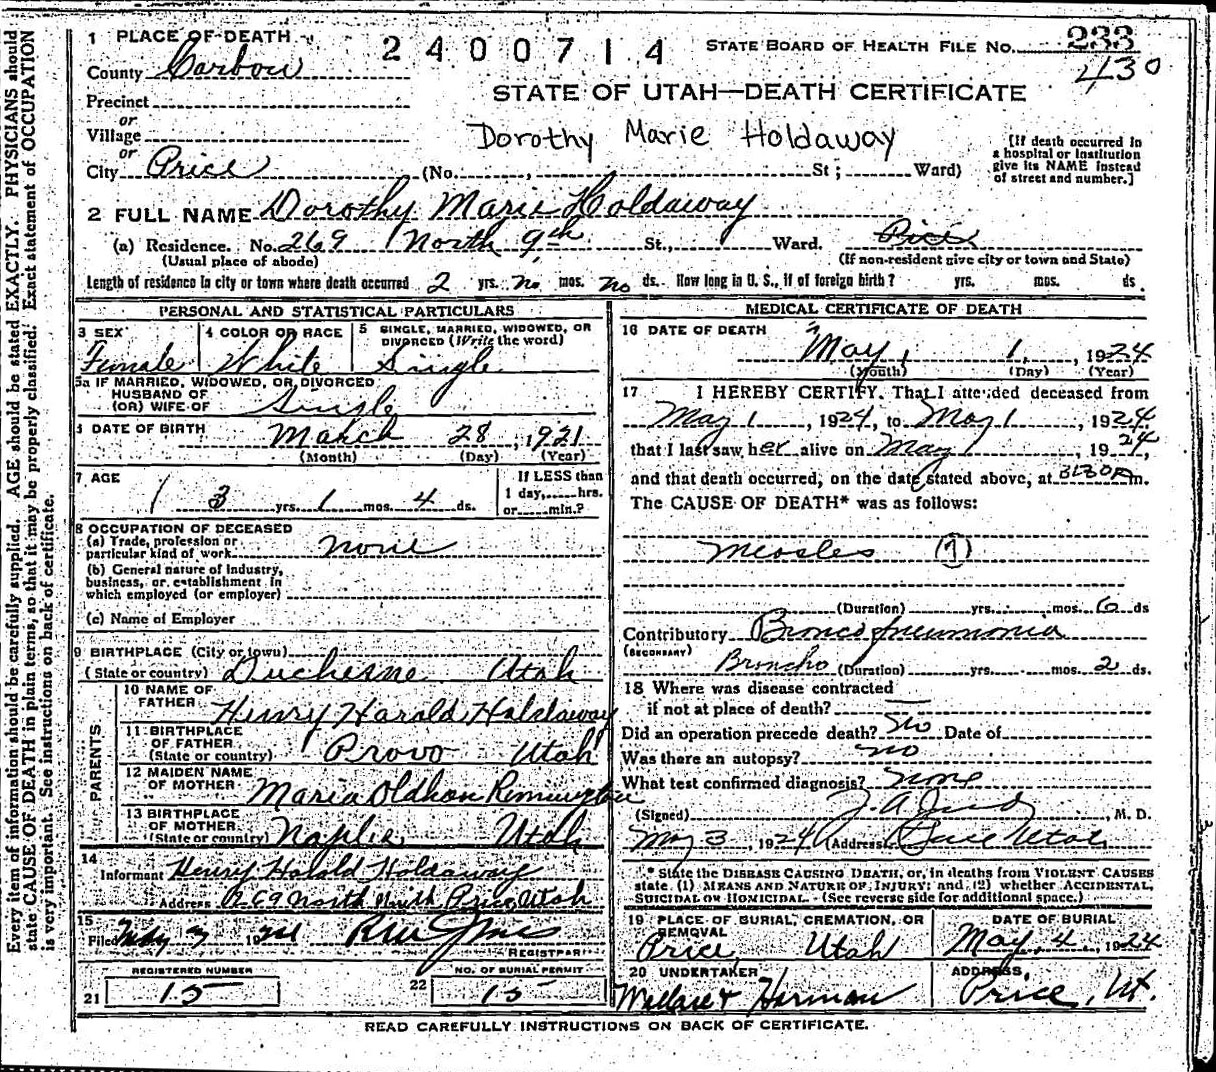 1 PLACE OF DEATH
2400714
STATE BOARD OF HEALTH FILE No. 233
430
County Carbon
STATE OF UTAH—DEATH CERTIFICATE
Precinct
or
Village
Dorothy Marie Holdaway
or
City Price (No. , St ; Ward)
[If death occurred in
a hospital or institution
give its NAME instead
of street and number.]
2 FULL NAME Dorothy Marie Holdaway
(a) Residence. No. 269 North 9th St., Ward. Price
(Usual place of abode) (If non-resident give city or town and State)
Length of residence in city or town where death occurred 2 yrs. no mos. no ds. How long in U. S., if of foreign birth? yrs. mos. ds.
PERSONAL AND STATISTICAL PARTICULARS
3 SEX Female
4 COLOR OR RACE White
5 SINGLE, MARRIED, WIDOWED, OR
DIVORCED (Write the word)
Single
5a IF MARRIED, WIDOWED, OR DIVORCED
HUSBAND OF
(OR) WIFE OF Single
DATE OF BIRTH March 28, 1921
(Month) (Day) (Year)
7 AGE 3 yrs. 1 mos. 4 ds.
If LESS than
1 day, hrs.
or min.?
8 OCCUPATION OF DECEASED
(a) Trade, profession or
particular kind of work none
(b) General nature of industry,
business, or establishment in
which employed (or employer)
(c) Name of Employer
9 BIRTHPLACE (City or town)
(State or country) Duchesne Utah
PARENTS
10 NAME OF
FATHER Henry Harold Holdaway
11 BIRTHPLACE
OF FATHER
(State or country) Provo Utah
12 MAIDEN NAME
OF MOTHER Maria Oldhon Remington
13 BIRTHPLACE
OF MOTHER
(State or country) Naples Utah
14
Informant Henry Harold Holdaway
Address 269 North Ninth Price, Utah
15
Filed 1924
REGISTRAR
REGISTERED NUMBER
21 15
NO. OF BURIAL PERMIT
22 15
MEDICAL CERTIFICATE OF DEATH
16 DATE OF DEATH
May 1, 1924
(Month) (Day) (Year)
17 I HEREBY CERTIFY, That I attended deceased from
May 1, 1924, to May 1, 1924
that I last saw her alive on May 1, 1924,
and that death occurred, on the date stated above, at m.
The CAUSE OF DEATH* was as follows:
Measles (7)
(Duration) yrs. mos. 6 ds
Contributory Bronco pneumonia
(SECONDARY)
Broncho (Duration) yrs. mos. 2 ds.
18 Where was disease contracted
if not at place of death?
Did an operation precede death? No Date of
Was there an autopsy? no
What test confirmed diagnosis? none
(Signed) , M. D.
May 3, 1924 (Address) Price Utah
* State the DISEASE CAUSING DEATH, or, in deaths from VIOLENT CAUSES
state (1) MEANS AND NATURE OF INJURY; and (2) whether ACCIDENTAL,
SUICIDAL OR HOMICIDAL. (See reverse side for additional space.)
19 PLACE OF BURIAL, CREMATION, OR
REMOVAL
Price, Utah
DATE OF BURIAL
May 4, 1924
20 UNDERTAKER
Wallace & Harman
ADDRESS,
Price, Ut.
READ CAREFULLY INSTRUCTIONS ON BACK OF CERTIFICATE.
Every item of information should be carefully supplied. AGE should be stated EXACTLY. PHYSICIANS should
state CAUSE OF DEATH in plain terms, so that it may be properly classified. Exact statement of OCCUPATION
is very important. See instructions on back of certificate.